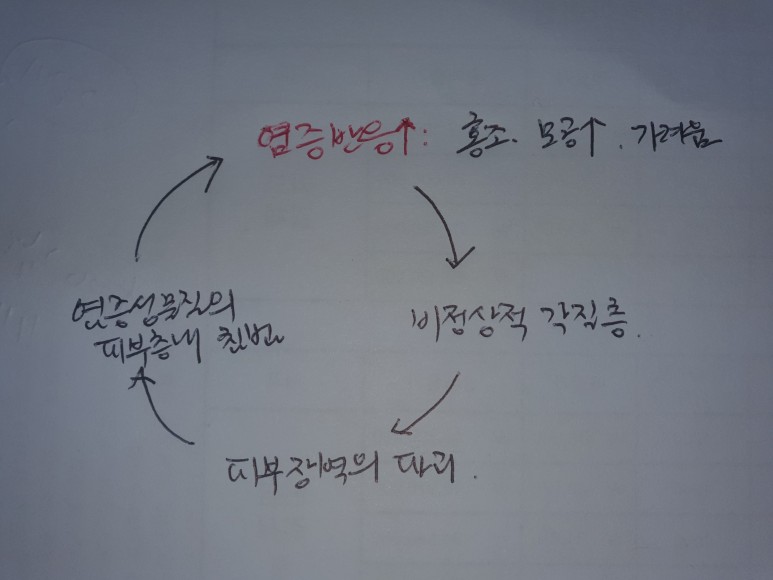 염증반응↑: 홍조. 모공↑. 가려움
염증성물질의
피부층내 침범.
비정상적 각질층.
피부장벽의 파괴.